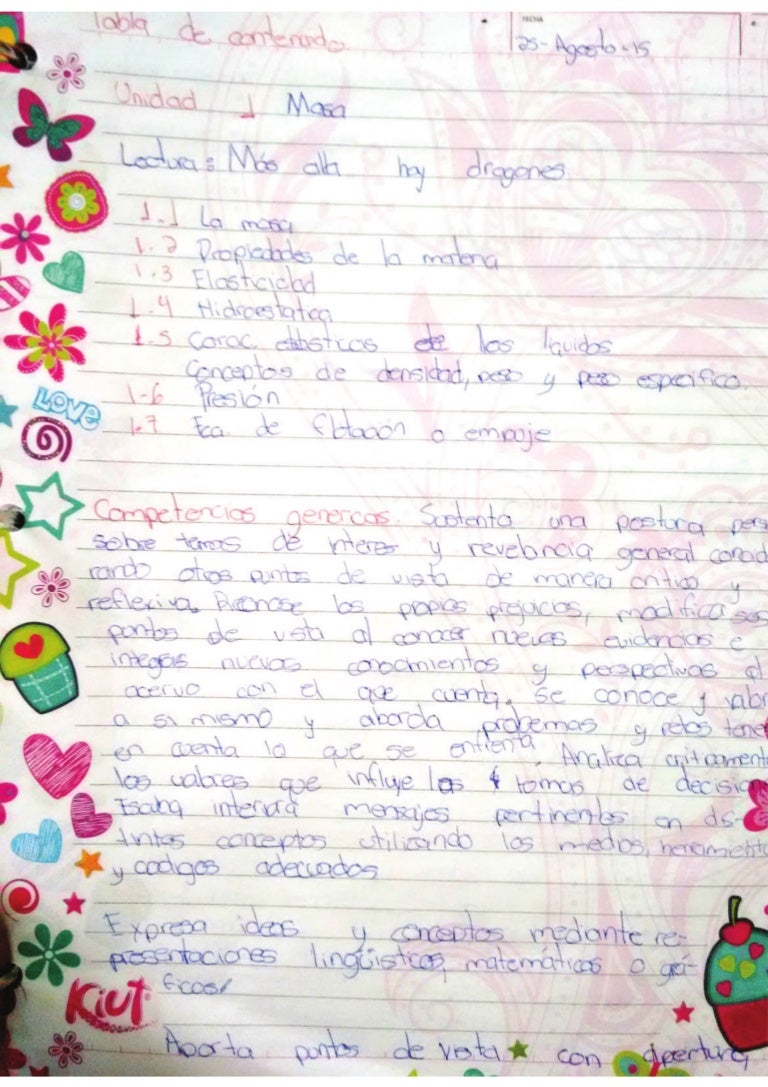 Tabla de contenido.
FECHA
25-Agosto-15
Unidad 1 Masa
Lectura: Más alla hay dragones
1.1 La masa
1.2 Propiedades de la materia
1.3 Elasticidad
1.4 Hidroestatica
1.5 Carac de los liquidos
Conceptos de densidad, peso y peso especifico.
1-6 Presión
1.7 Eca. de flotación o empuje
LOVE
Competencias genericas. Sustenta una postura pers
sobre temas de interes y revelancia general consid
rando otros puntos de vista de manera critica y
reflexiva. Reconose los propios prejuicios, modifica sus
puntos de vista al conocer nuevas evidencias e
integrais nuevos conocimientos y perspectivas al
acervo con el que cuenta. Se conoce y valor
a si mismo y aborda probemas y retos tene
en cuenta lo que se Analiza criticamente
los valores que influye las tomas de decision
mensajes pertinentes en dis-
tintos conceptos utilizando los medios, herramienta
y codigos adecuados
Expresa ideas y conceptos mediante re-
presentaciones lingüísticas, matemáticas o grá-
ficos.
Kiut
Aporta puntos de vista con apertura